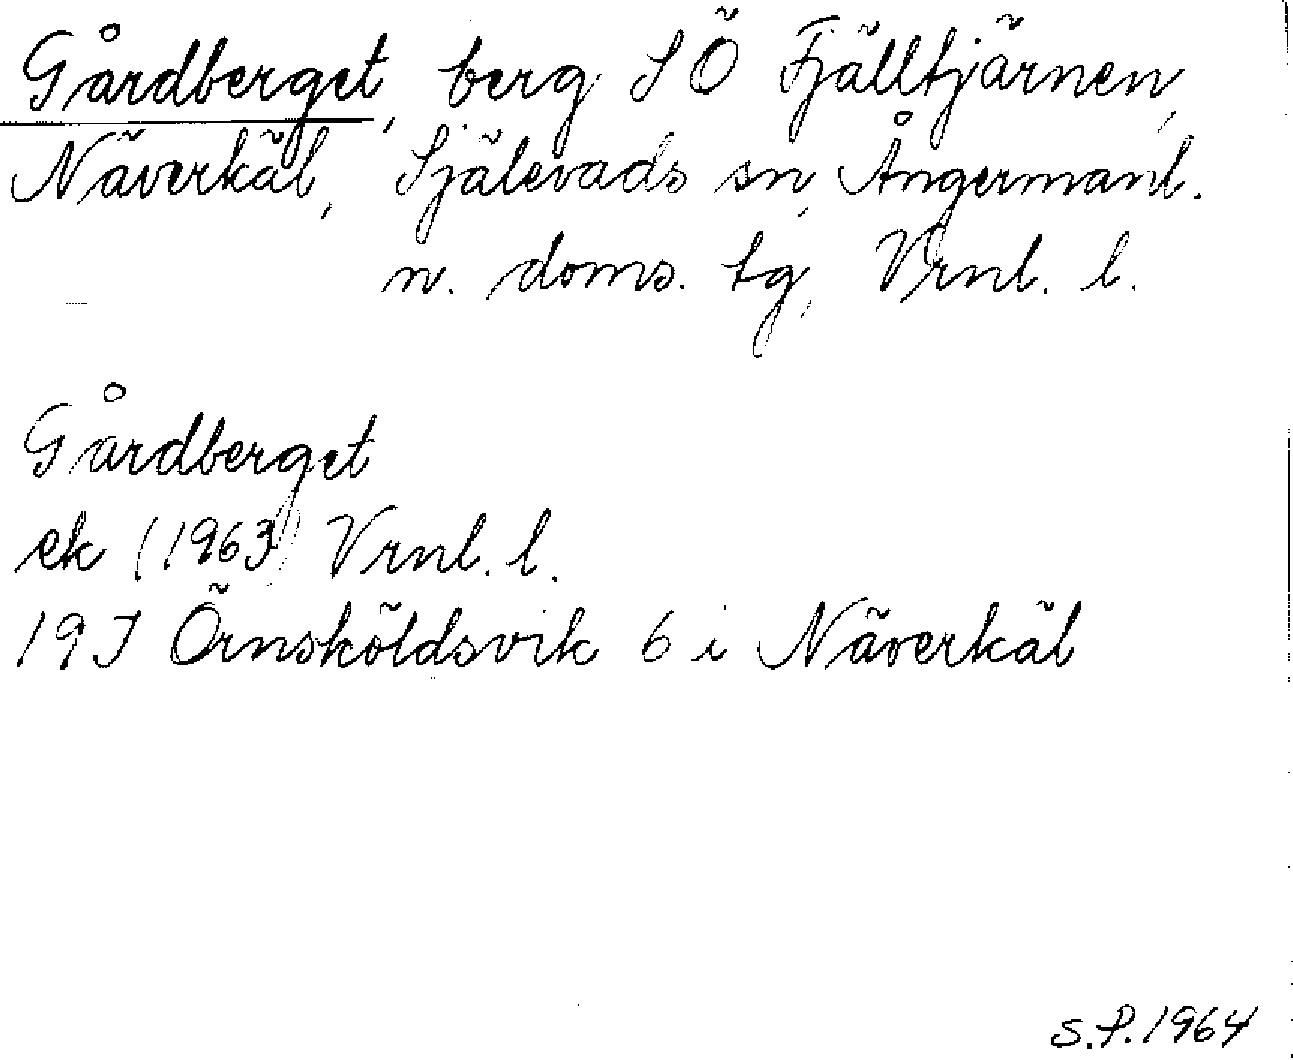 Gårdberget, berg SÖ Fjälltjärnen,
Näverkäl, Själevads sn, Ångermanl.
n. doms. tg, Vrnl. l.
Gårdberget
ek (1963) Vrnl. l.
19J Örnsköldsvik 6 i Näverkäl
S.P.1964